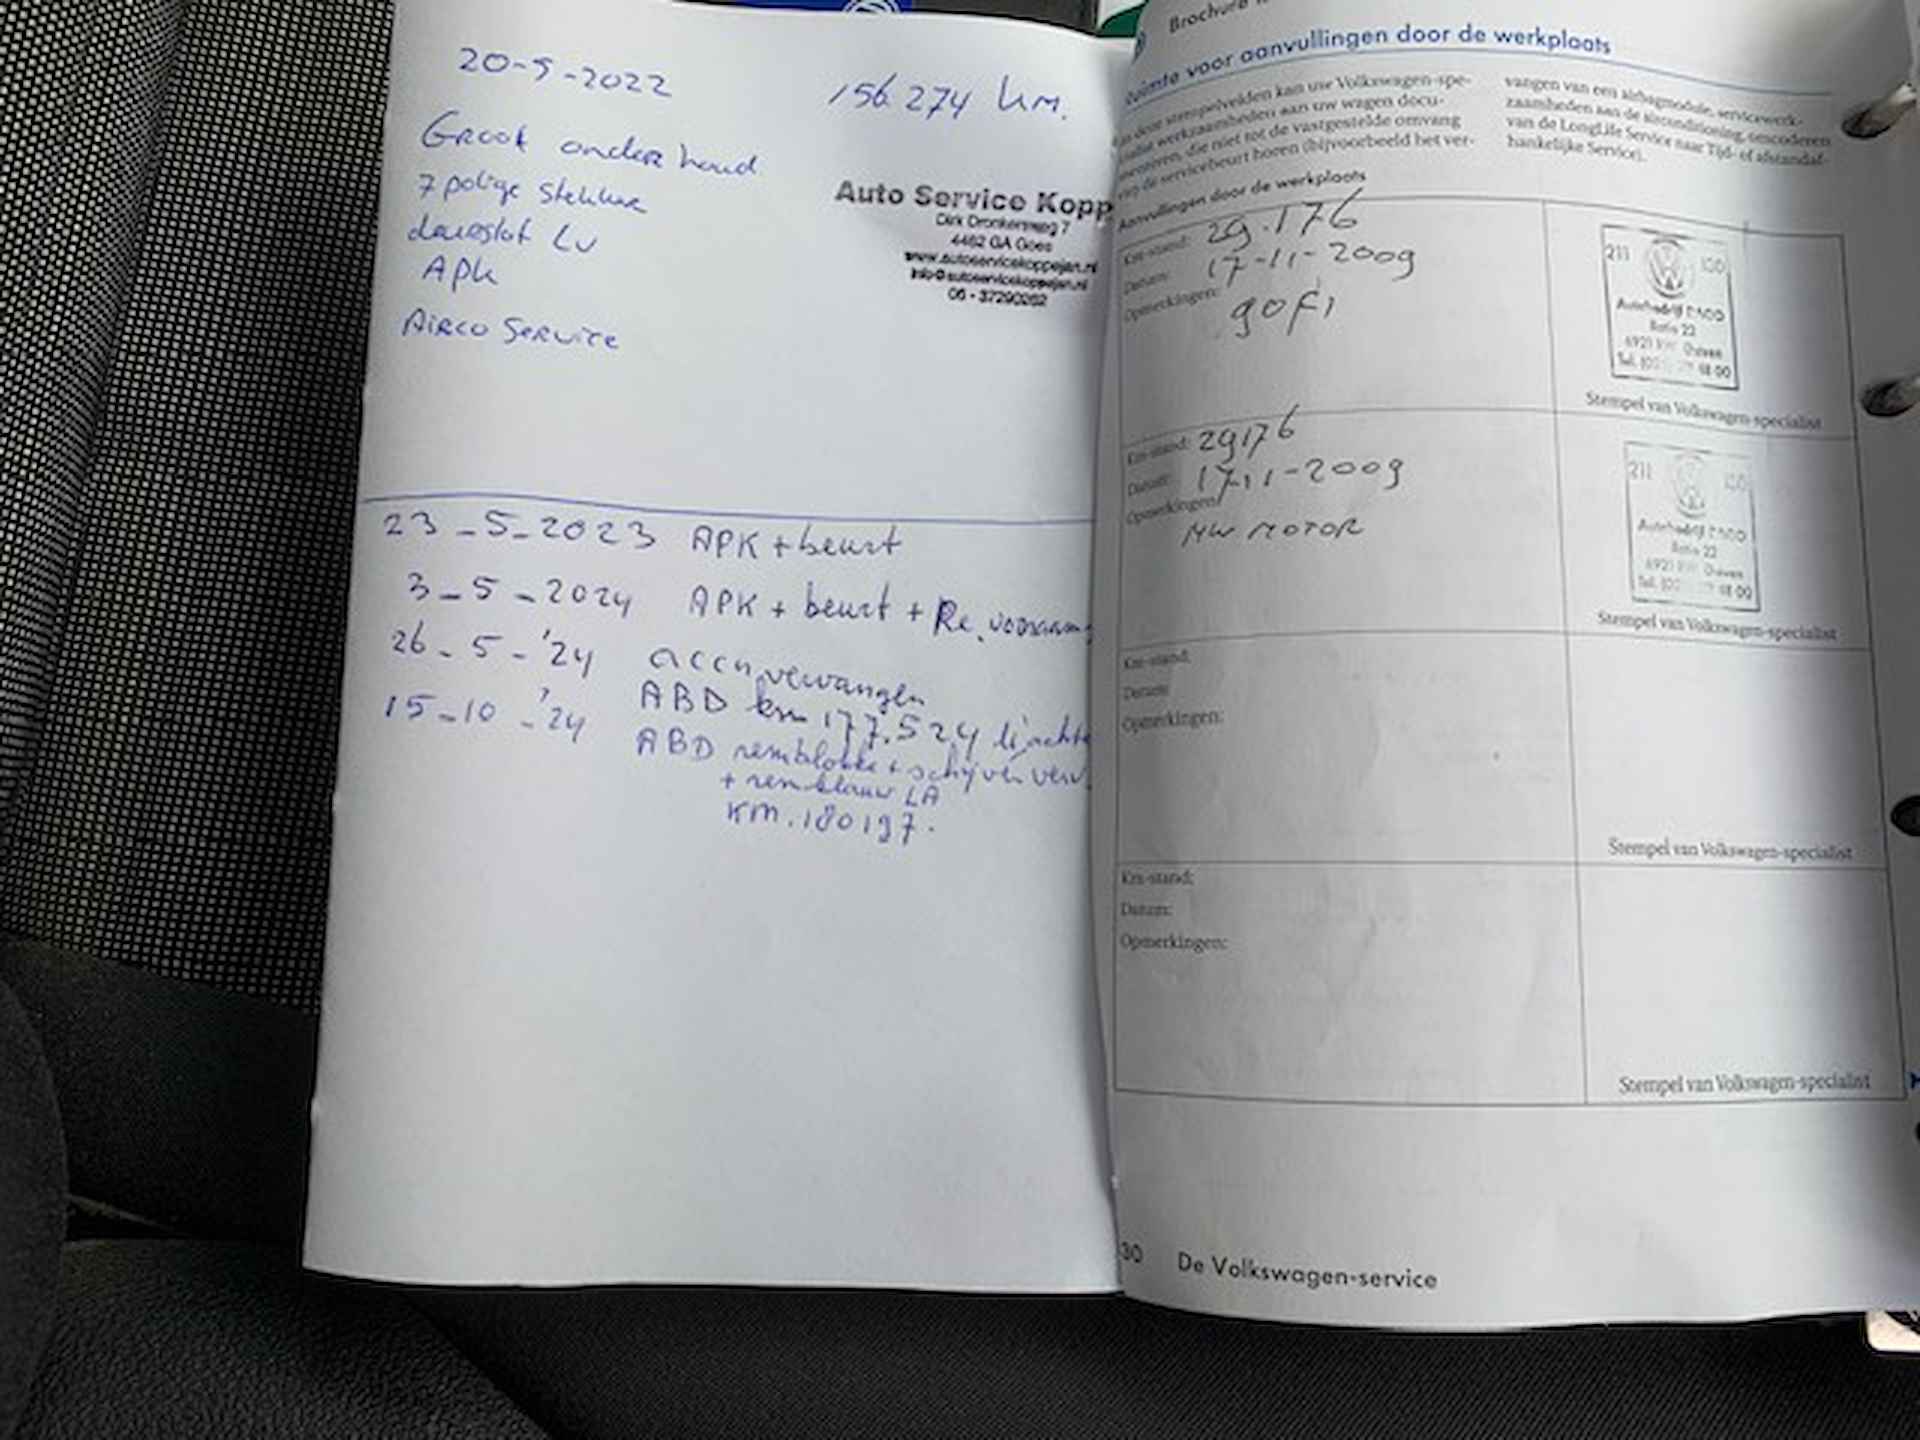 20-5-2022
156.274 km.
Groot onderhoud
7 polige Stekker
deurslot LV
APK
Airco Service
Auto Service Kopp
Dirk Dronkersweg 7
4462 GA Goes
www.autoservicekoppejan.nl
info@autoservicekoppejan.nl
06 - 37290262
23-5-2023 APK + beurt
3-5-2024 APK + beurt + Re.
26-5-'24 accu vervangen
ABD km 177.524
15-10-'24 ABD remblokke + schijven verv
+ remklauw LA
KM. 180197.
Brochure
Ruimte voor aanvullingen door de werkplaats
In deze stempelvelden kan uw Volkswagen-spe-
werkzaamheden aan uw wagen docu-
menteren, die niet tot de vastgestelde omvang
van de servicebeurt horen (bijvoorbeeld het ver-
vangen van een airbagmodule, servicewerk-
zaamheden aan de airconditioning, omcoderen
van de LongLife Service naar Tijd- of afstandaf-
hankelijke Service).
Aanvullingen door de werkplaats
Km-stand: 29.176
Datum: 17-11-2009
Opmerkingen: 90F1
211
Autobedrijf
Ratio 22
6921 Duiven
Tel. 68 00
Stempel van Volkswagen-specialist
Km-stand: 29176
Datum: 17-11-2009
Opmerkingen:
MW MOTOR
211
Autobedrijf
Ratio 22
6921 Duiven
Tel. 68 00
Stempel van Volkswagen-specialist
Km-stand:
Datum:
Opmerkingen:
Stempel van Volkswagen-specialist
Km-stand:
Datum:
Opmerkingen:
Stempel van Volkswagen-specialist
30 De Volkswagen-service